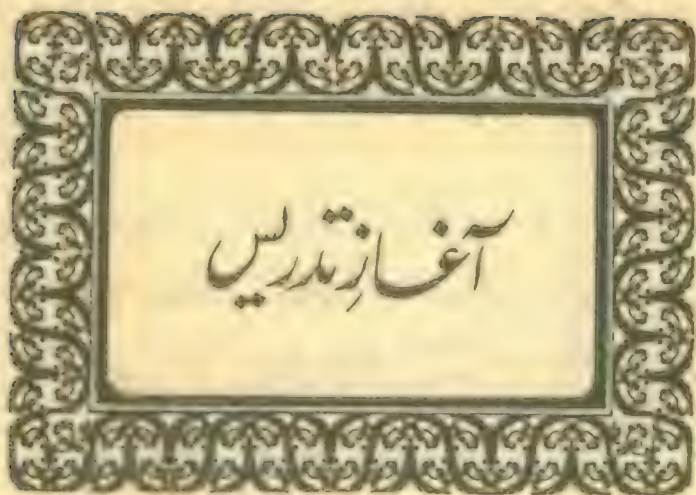 آغازِ تدریس